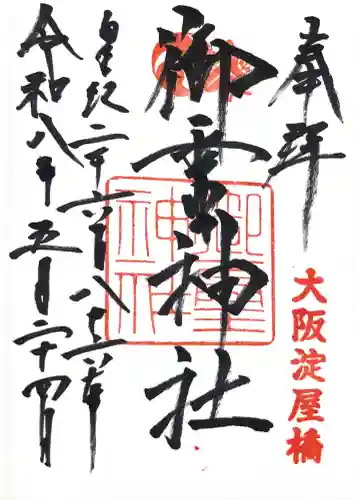 奉拝
大阪淀屋橋
御霊神社
御霊神社
皇紀二千六百八十六年
令和八年五月二十四日